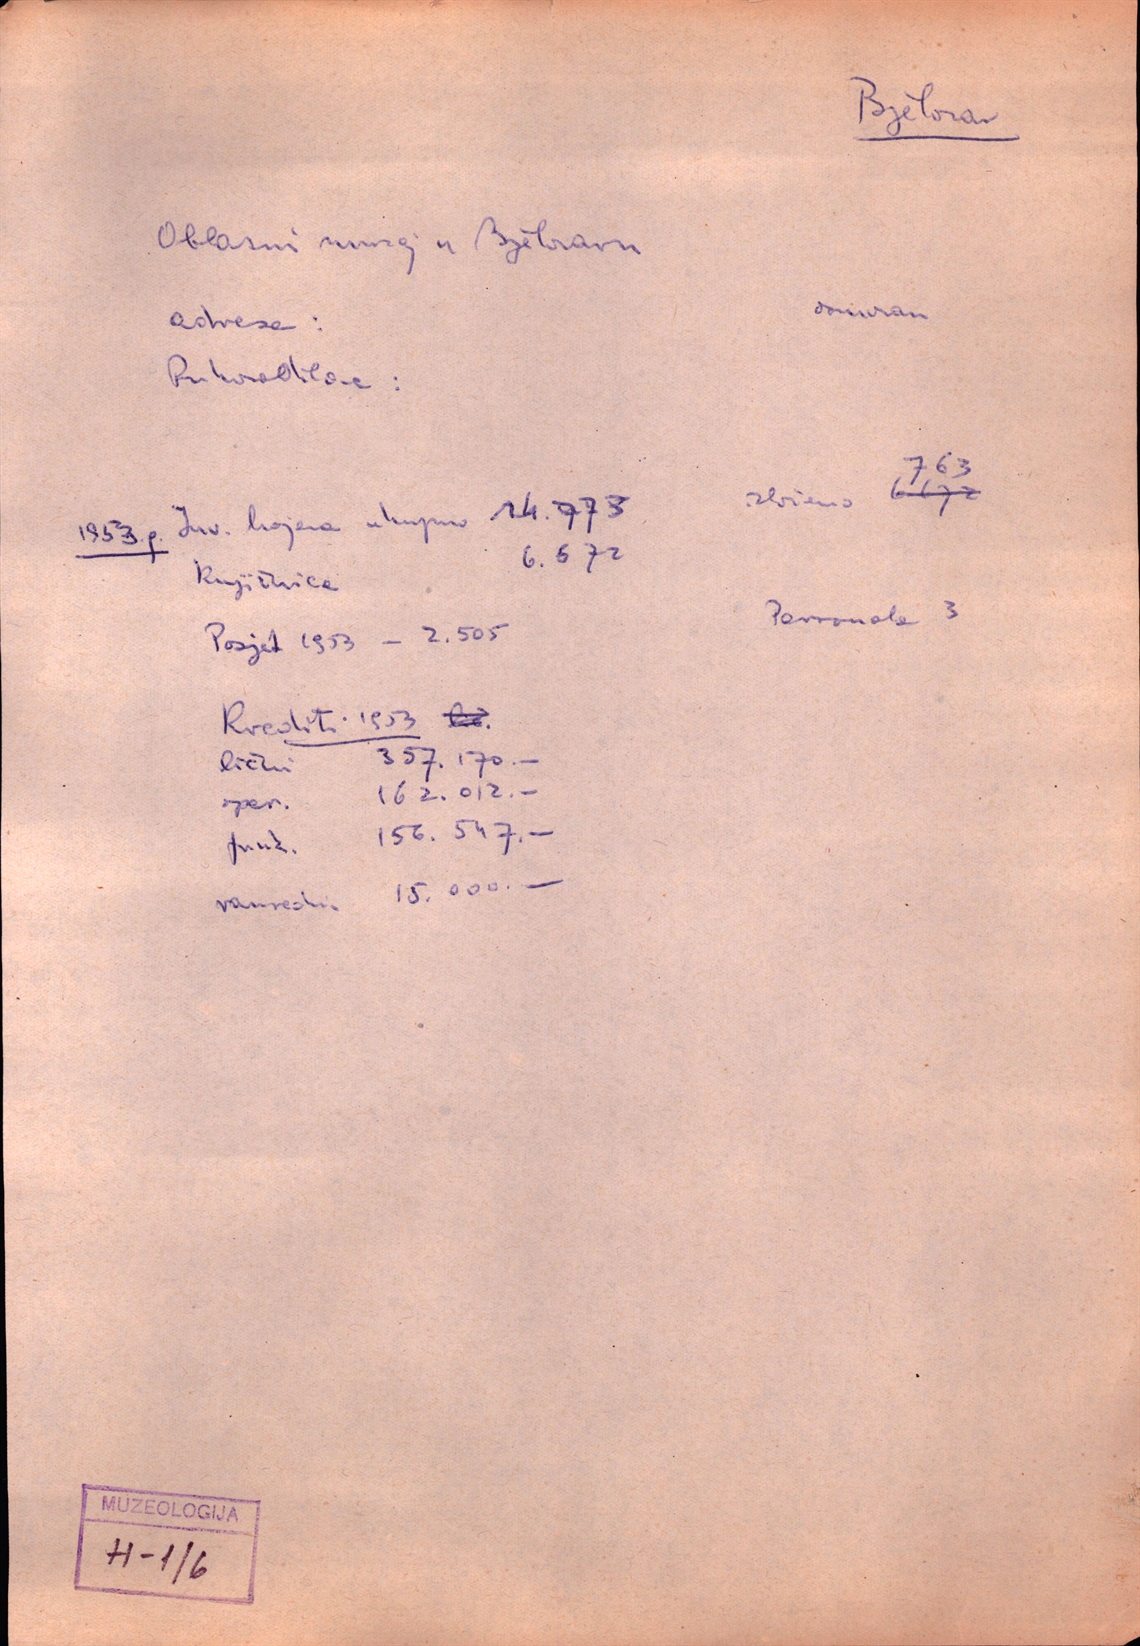 Bjelovar
Oblasni muzej u Bjelovaru
adresa : osnovan
Rukovodilac :
763
1953. g. Inv. brojeva ukupno 14.973 izloženo 6672
6.672
Knjižnica
Posjet 1953 – 2.505 Personala 3
Krediti 1953
lični 357.170.–
oper. 162.012.–
funk. 156.547.–
vanredni 15.000.–
MUZEOLOGIJA
H-1/6